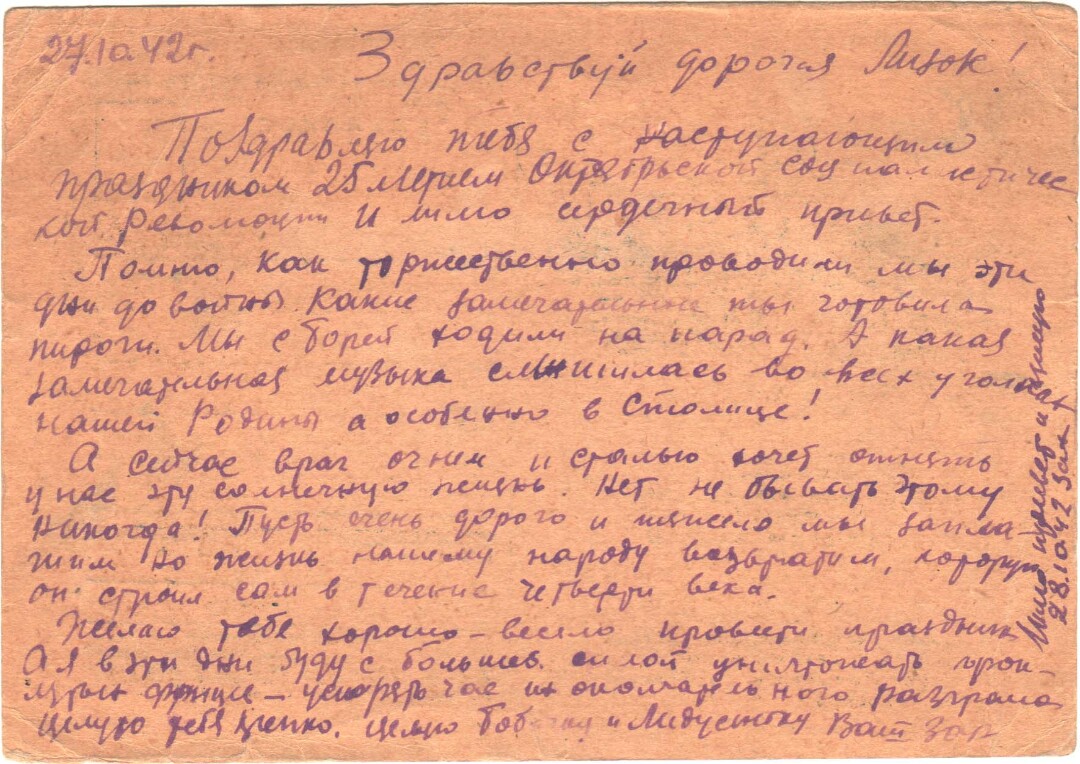 27.10.42 г.
Здравствуй дорогая Лизок!
Поздравляю тебя с наступающим
праздником 25 летием Октябрьской социалистичес
кой Революции и шлю сердечный привет.
Помню, как торжественно проводили мы эти
дни до войны. Какие замечательные ты готовила
пироги. Мы с Борей ходили на парад. А какая
замечательная музыка слышилась во всех уголках
нашей Родины а особенно в Столице!
А сейчас враг огнем и сталью хочет отнять
у нас эту солнечную жизнь. Нет не бывать этому
никогда! Пусть очень дорого и тяжело мы запла-
тим но жизнь нашему народу возвратим, которую
он строил сам в течение четверти века.
Желаю тебе хорошо – весело провести праздник
А я в эти дни буду с большей силой уничтожать прок-
лятых – ускорять час их окончательного разгрома
Целую тебя крепко. Целую и Лидусеньку Ваш Зах
Шлю привет и целую
28.10.42 Зах